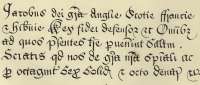 Jacobus dei gra Anglie Scotie ffrancie
& hibnie Rex fidei defensor &c Omibz
ad quos psentes lre puenint Saltm.
Sciatis qd nos de gra nra spiali ac
p octagint Sex Solid & octo denar